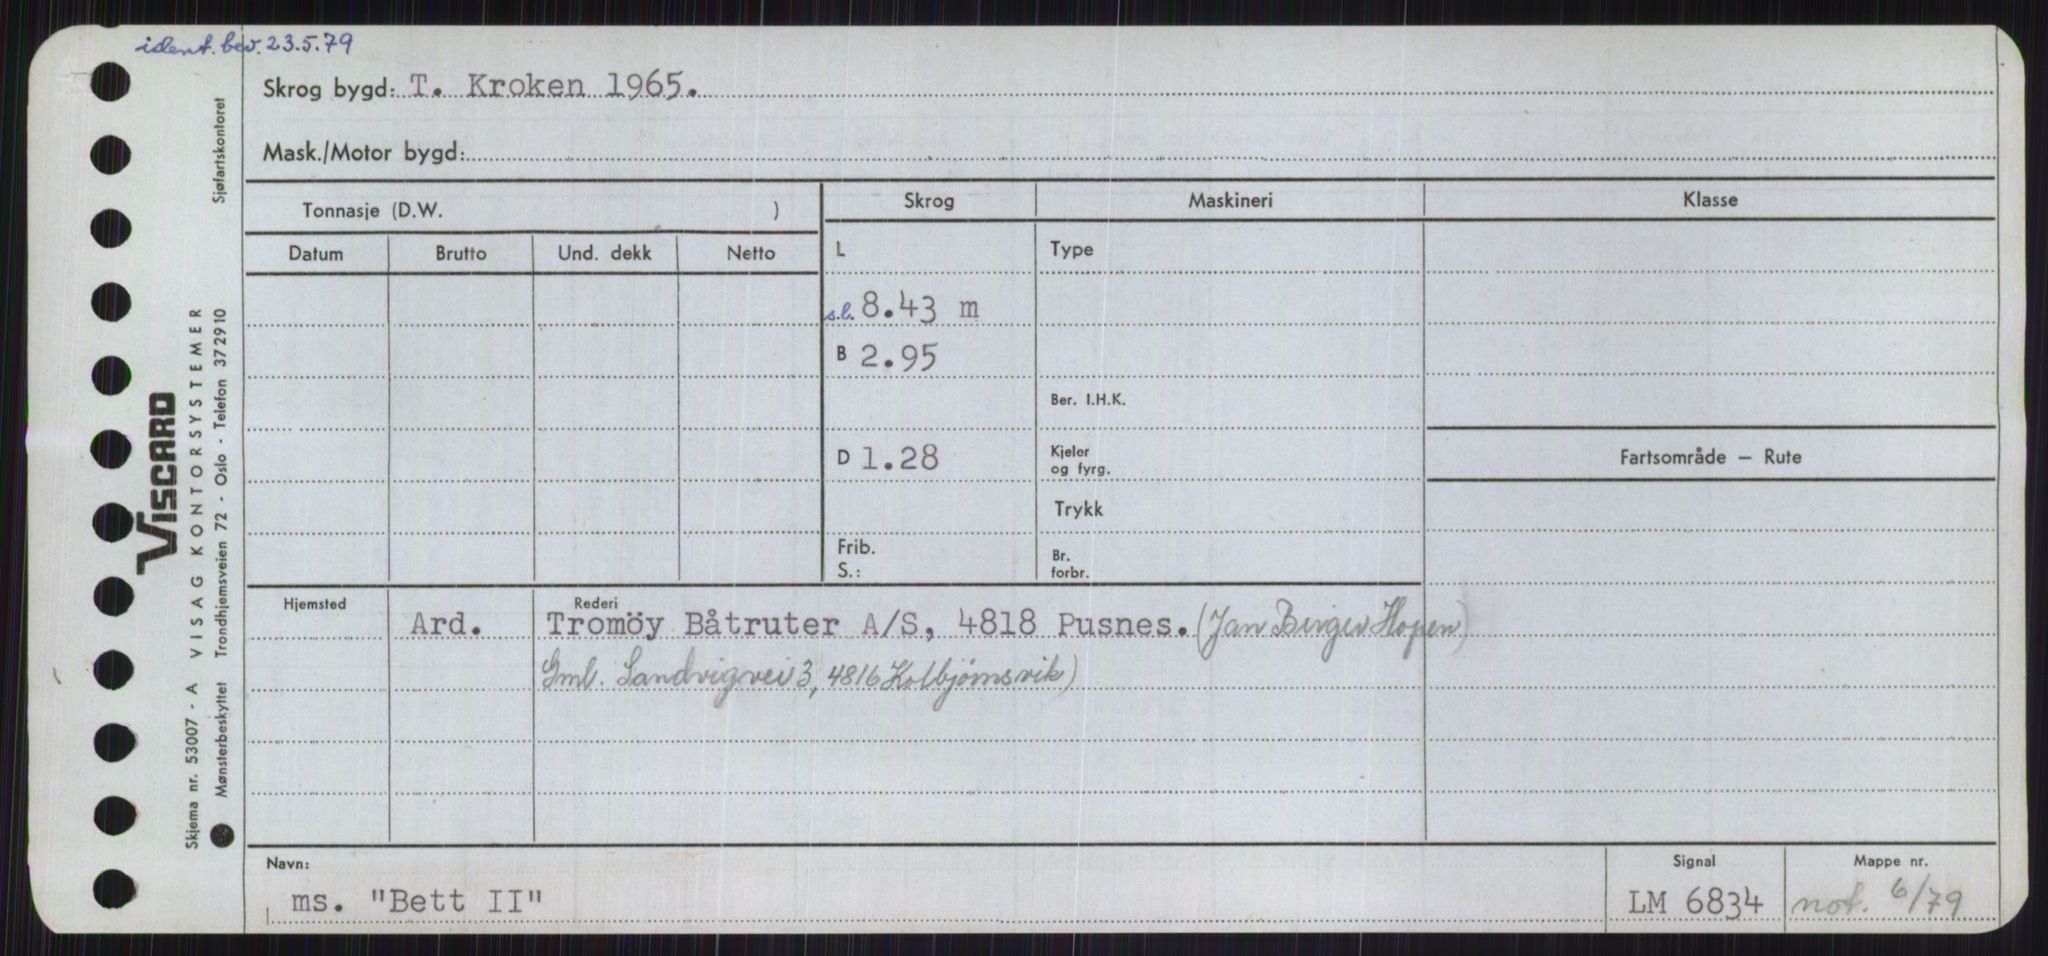 ident. bev. 23.5.79
Skrog bygd: T. Kroken 1965.
Mask./Motor bygd:
Tonnasje (D.W. )
Skrog Maskineri Klasse
Datum Brutto Und. dekk Netto
L Type
s.b. 8.43 m
B 2.95
Ber. I.H.K.
D 1.28
Kjeler
og fyrg.
Fartsområde – Rute
Trykk
Frib.
S.:
Br.
forbr.
Hjemsted Rederi
Ard. Tromöy Båtruter A/S, 4818 Pusnes. (Jan Birger Hopen)
Gml. Sandvigvei 3, 4816 Kolbjørnsvik)
Navn: Signal Mappe nr.
ms. "Bett II" LM 6834 not. 6/79
VISCARD
Skjema nr. 53007 - A VISAG KONTORSYSTEMER
Mønsterbeskyttet Trondhjemsveien 72 - Oslo - Telefon 37 29 10 Sjøfartskontoret